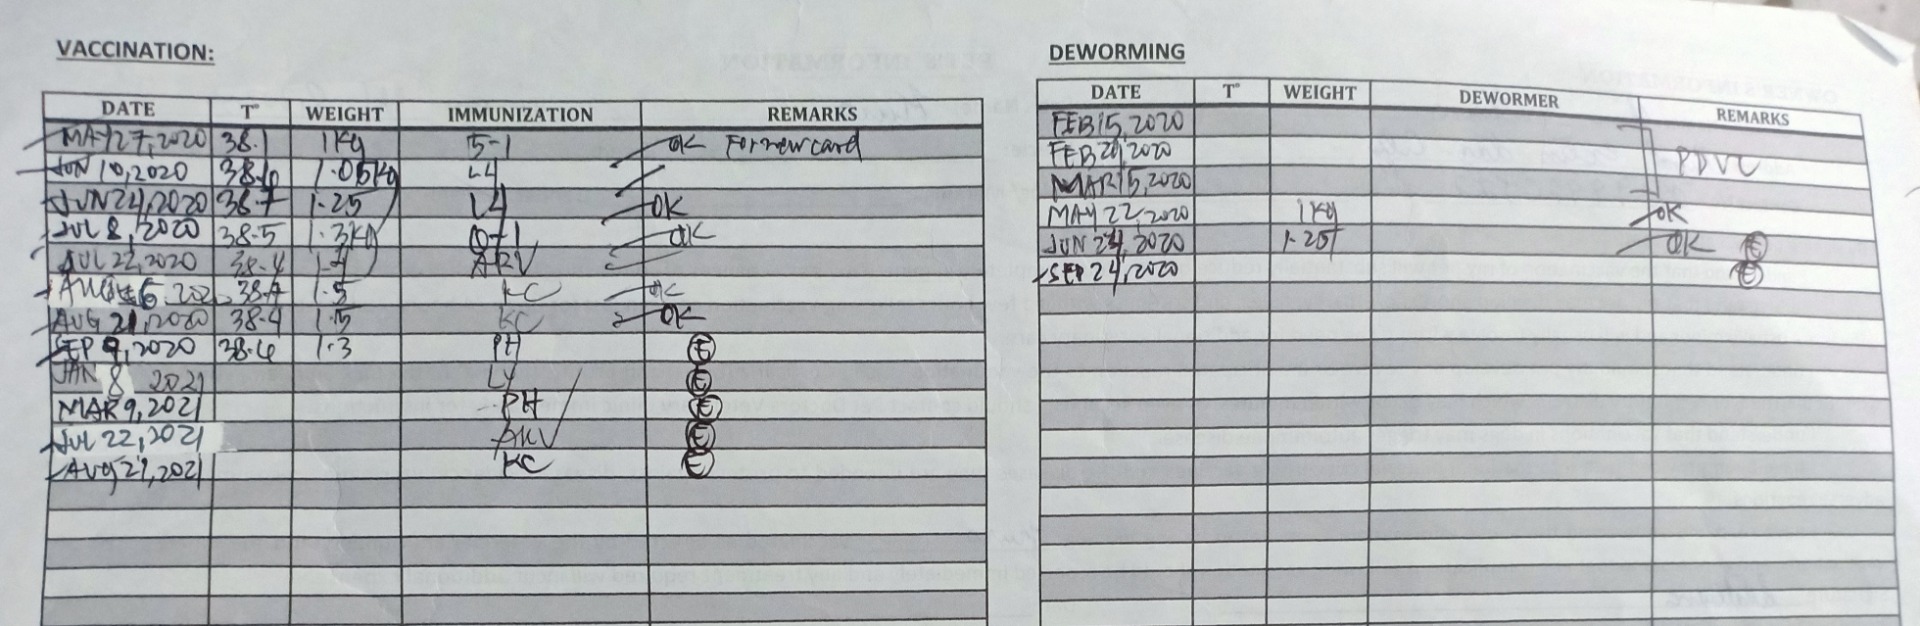 VACCINATION:
DATE T° WEIGHT IMMUNIZATION REMARKS
MAY 27, 2020 38.1 1Kg 5-1 OK For new card
JUN 10, 2020 38.6 1.05Kg L4
JUN 24, 2020 38.7 1.25 L4 OK
JUL 8, 2020 38.5 1.3Kg OK
JUL 22, 2020 38.4 1.4 ARV
AUG 6 2020 38.7 1.5 KC OK
AUG 21, 2020 38.4 1.5 KC OK
SEP 9, 2020 38.6 1.3 PH E
JAN 8 2021 L4 E
MAR 9, 2021 PH E
JUL 22, 2021 ARV E
AUG 21, 2021 KC E
DEWORMING
DATE T° WEIGHT DEWORMER REMARKS
FEB 15, 2020
FEB 29, 2020 PDVC
MAR 15, 2020
MAY 22, 2020 1Kg OK
JUN 24, 2020 1.25 OK E
SEP 24, 2020 E